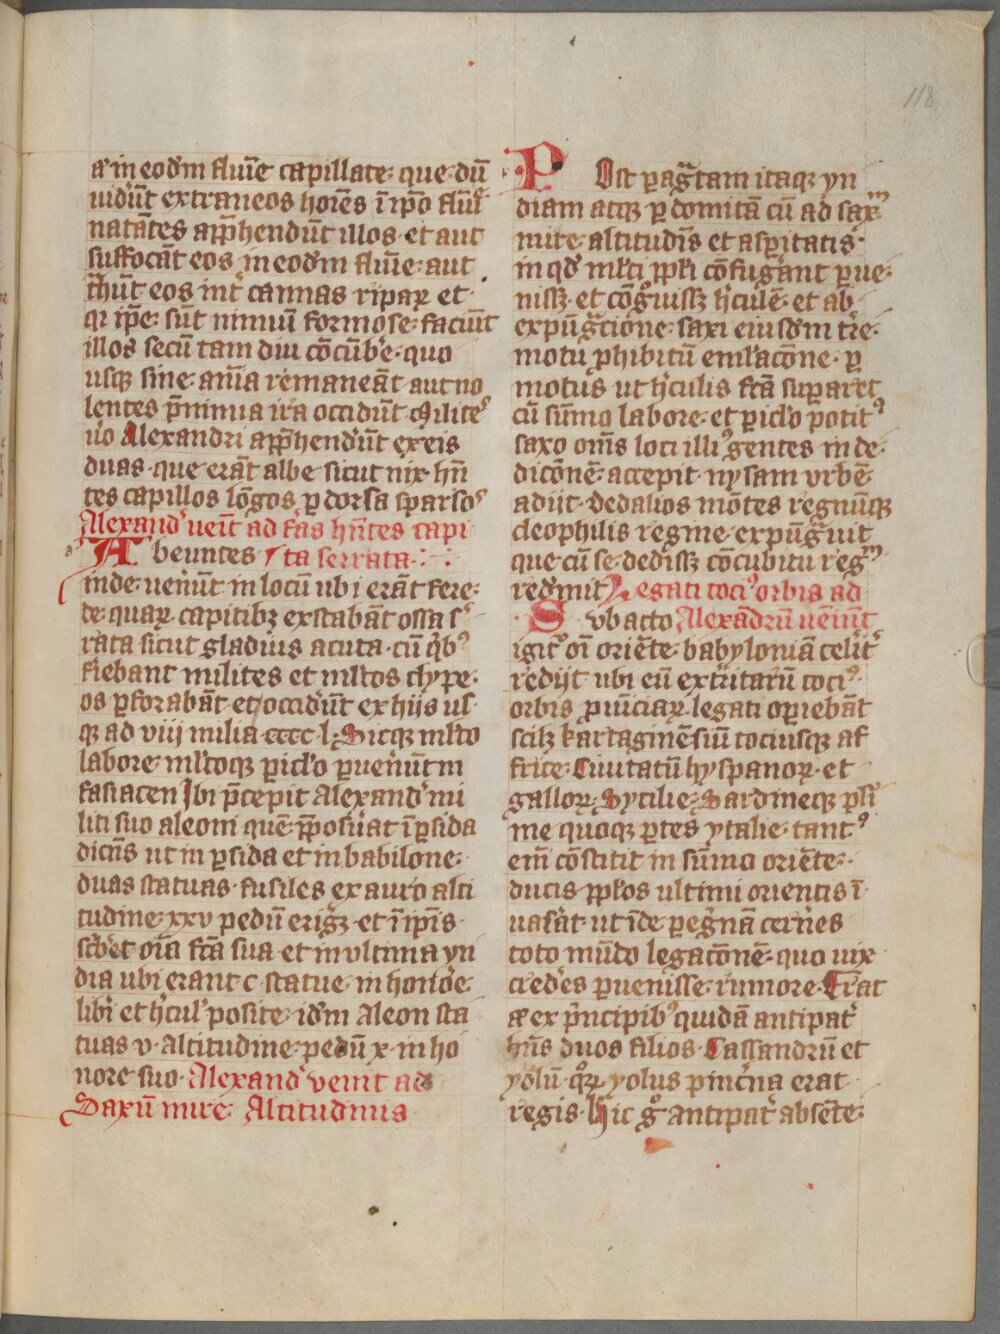 118
et in eodm̄ fluuīe capillate· que dū
uid'ūt extraneos hoīes ī ip̄o flūīe
natātes app̄hendūt illos· et aut
suffocāt eos in eodm̄ fluīe· aut
t̄hūt eos int' cannas ripaꝝ et·
qꝛ ip̄e· sūt nimiū formose· faciūt
illos secū tam diu cōcūb'e· quo
usqꝫ sine· aīa remaneāt aut no
lentes p̄ nimia ira occidūt· Milites
u'o Alexandri app̄hend'ūt ex eis
duas· que erāt albe sicut nix· hn̄
tes capillos lōgos ꝑ dorsa sparsoꝰ
Alexand' uēit ad f'as hn̄tes capi
Abeuntes ta serrata·
inde· uen'ūt in locū ubi erāt fere·
de· quaꝝ capitibꝫ exstabāt ossa s'
rata sicut gladius acuta· cū qⁱbꝰ
fiebant milites et ml̄tos clype·
os ꝑforabāt et occid'ūt ex hijs us·
qꝫ ad viij milia· cccc· l· Sicqꝫ ml̄to
labore· ml̄toqꝫ ꝑic'lo ꝑuen'ūt in
fasiacen Ibi p̄cepit Alexand' mi
liti suo aleoni quē p̄posu'at ī ꝑsida
dicn̄s ut in ꝑsida et in babilone·
duas statuas· fusiles ex auro alti
tudine· xxv pedū erig'ꝫ· et ī ip̄is·
sc'b'et oīa fc̄a sua· et in vltima yn
dia ubi erant c statue· in honore·
lib'i et h'cul' posite· idm̄ Aleon sta
tuas v· altitudine· pedū x· in ho
nore· suo· Alexand' venit ad
Saxū mire· Altitudinis
Post ꝑag'tam itaqꝫ yn
diam atqꝫ ꝑdomitā cū ad saxᵐ
mire· altitudīs et asꝑitatis·
in qd̄ ml̄ti pp̄li cōfug'ant ꝑue·
nissꝫ· et cōg'uissꝫ h'culē· et ab·
expūg'tione· saxi eiusdm̄ t're·
motu ꝓhibitū eml'acōne· ꝑ
motus ut h'culis fc̄a suꝑaret
cū sūmo labore· et ꝑic'lo potitꝰ
saxo oms̄ loci illiꝰ gentes in de·
dicōnē· accepit· nysam vrbē
adijt· dedalios mōtes regnūqꝫ
cleophilis regine expūg'uit
que cū se· dedissꝫ cōcubitu regᵐ
redm̄it Legati tociꝰ orbis ad
Svbacto Alexādrū uēiūnt
igit' oī oriēte· babyloniā celit'
redijt· ubi eū ext'ritarū tociꝰ·
orbis ꝓuīciaꝝ· legati oꝑiebāt
scilꝫ kartaginēsiū tociusqꝫ af
frice· Ciuitatū hyspanoꝝ· et·
galloꝝ· Sycilie· Sardineqꝫ pl'i
me quoqꝫ ꝑtes ytalie· tantꝰ
em̄ cōstitit in sūmo oriēte·
ducis pp̄los ultimi orientis ī·
uas'at· ut īde ꝑeg'nā cern'es
toto mūdo legacōnē· quo uix·
cred'es ꝑuenisse· rumore· Erat
et ex p'ncipibꝰ quidā antipat'
hn̄s duos filios· Cassandrū et
yolū· qꝛ yolus pincⁱna erat·
regis· Hic gͦ antipat' absēte·